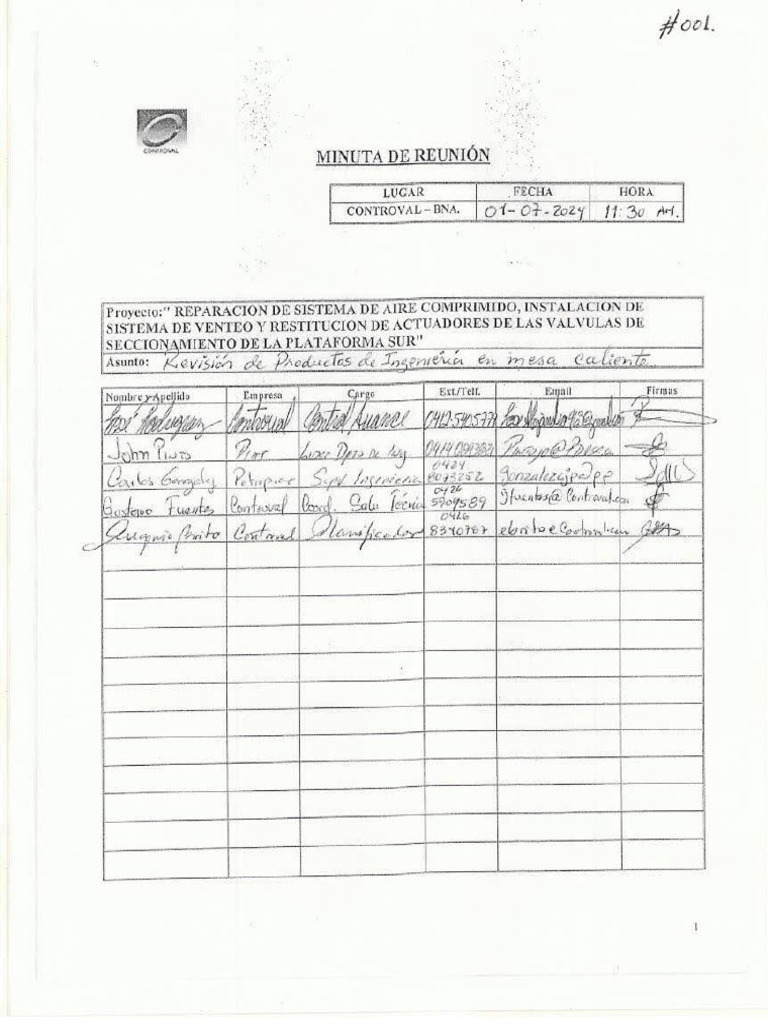 #001.
CONTROVAL
MINUTA DE REUNIÓN
LUGAR FECHA HORA
CONTROVAL – BNA. 01-07-2024 11:30 AM.
Proyecto:" REPARACION DE SISTEMA DE AIRE COMPRIMIDO, INSTALACION DE
SISTEMA DE VENTEO Y RESTITUCION DE ACTUADORES DE LAS VALVULAS DE
SECCIONAMIENTO DE LA PLATAFORMA SUR"
Asunto: Revisión de Productos de Ingeniería en mesa caliente
Nombre y Apellido Empresa Cargo Ext/Telf. Email Firmas
José Rodriguez Controval Control Avance 04125405779
John Pinto Dpto de Ing.
Carlos Gonzalez 0424 8073252
Gustavo Fuentes Controval Coord. Sala Técnica 0426 5909589 gfuentes@Controval.com
Eugenio Brito Controval Planificador 0426 8340787 ebrito@Controval.com
1